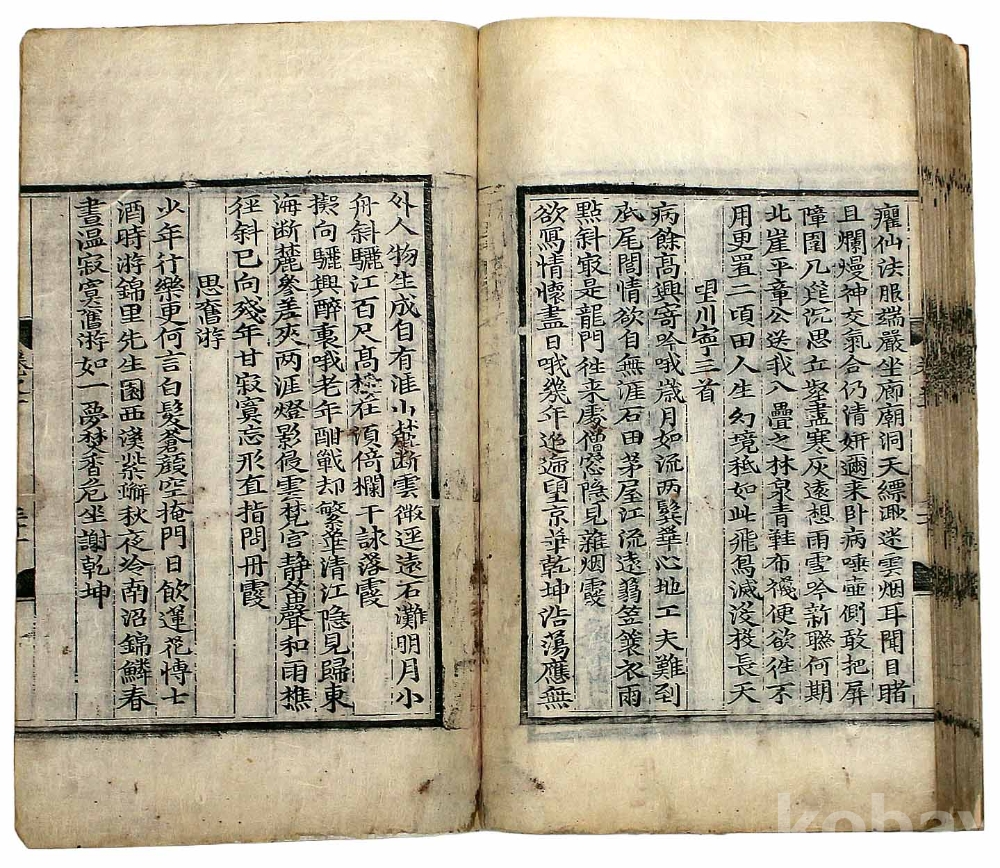 癯仙法服瑞嚴坐廊廟洞天縹渺迷雲烟耳聞目睹
且爛熳神交氣合仍清妍邇来卧病唾壺側敢把屏
障圍几筵沉思丘壑盡寒灰遠想雨雪吟新聯何期
北崖平章公送我八疊之林泉青鞋布襪便欲徃不
用更置二頃田人生幻境秪如此飛鳥滅沒投長天
望川寧三首
病餘高興寄吟哦歳月如流两鬂華心地工夫難到
底尾閭情欲自無涯石田茅屋江流遠蒻笠簑衣雨
點斜㝡是龍門徃来處僧窓隐見雜烟霞
欲寫情懷盡日哦幾年迢遞望京華乾坤浩蕩應無
外人物生成自有涯小麓断雲微逕遠石灘明月小
舟斜驪江百尺髙樓在須倚欄干詠落霞
擬向驪興醉裏哦老年酣戰却繁華清江隐見歸東
海断麓參差夾两涯燈影侵雲梵宫静笛聲和雨樵
徑斜已向殘年甘寂寞忘形直指問丹霞
思舊游
少年行樂更何言白髮蒼顔空掩門日飲運花博士
酒時游錦里先生園西溪紫蠏秋夜吟南沼錦鱗春
晝温寂寞舊游如一夢焚香危坐謝乾坤
kobay